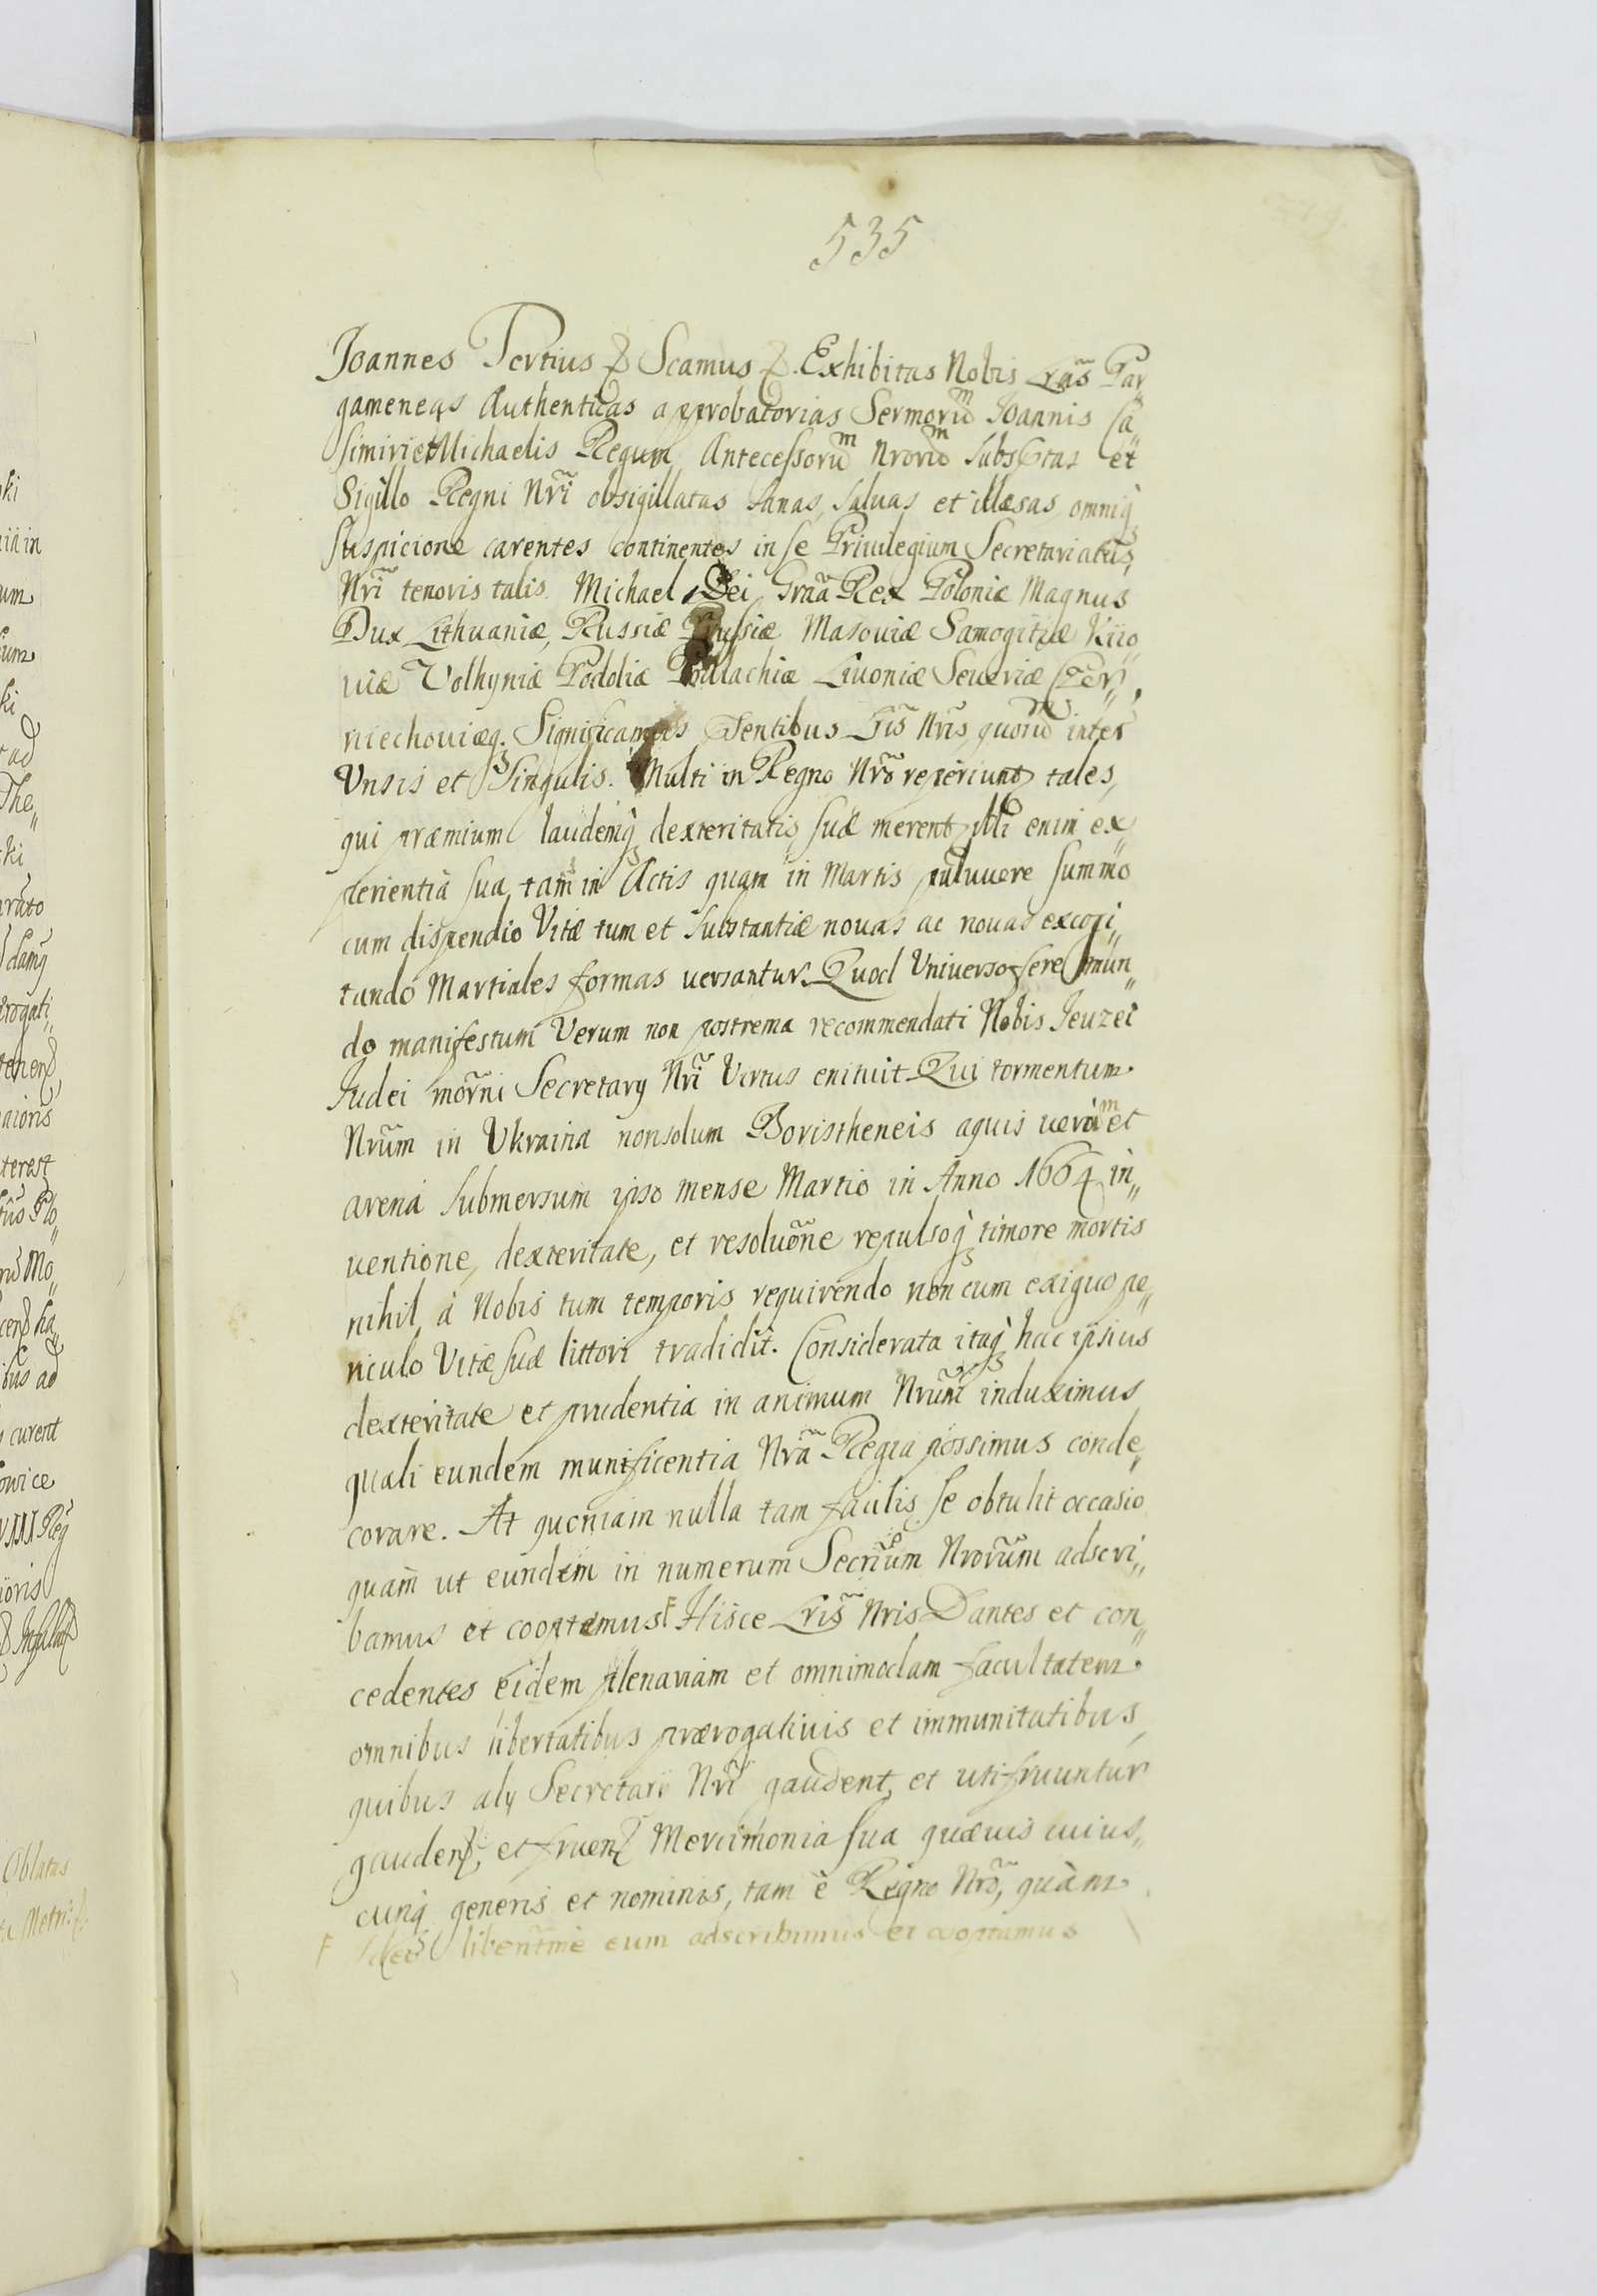 535
Joannes Tertius Scamus Exhibitas Nobis Lrãs Par„
gameneas Authenticas approbatorias Sermorũm Joannis Ca„
simiri et Michaelis Regum Antecessorũm Nrorũm subsctas et
Sigillo Regni Nrĩ obsigillatas sanas saluas et illæsas omniq̀
suspicione carentes continentes in se Priuilegium Secretariatus
Nrĩ tenoris talis. Michael Dei Grãa Rex Poloniæ Magnus
Dux Lithuaniæ, Russiæ Prussiæ Masouiæ Samogitiæ Kiio„
uiæ Volhyniæ Podoliæ Podlachiæ Liuoniæ Seueriæ Czer„
niechouiæq. Significamus Psentibus Lris Nris, quorũm inter
Vnsis et Singulis. Multi in Regno Nrõ reperiunt tales,
qui præmium laudemq̀ dexteritatis suæ merent, illi enim ex„
perientià sua tam in Actis quam in Martis puluuere summo
cum dispendio Vitæ tum et substantiæ nouas ac nouas excogi„
tando Martiales formas uersantur. Quod Vniuerso fere mun„
do manifestum Verum non postrema recommendati Nobis Jeuzei
Judei morñi Secretarÿ Nrĩ Virtus enituit Qui tormentum
Nrũm in Vkraina nonsolum Boristheneis aquis uerùm et
arenà submersum ipso mense Martio in Anno 1664 in„
uentione, dexteritate, et resoluõne repulsoq̀ timore mortis
nihil à Nobis tum temporis requirendo non cum exiguo pe„
riculo Vitæ suæ littori tradidit. Considerata itaq̀ hac ipsius
dexteritate et prudentia in animum Nrũm induximus
quali eundem munificentia Nrã Regia possimus conde„
corare. At quoniam nulla tam facilis se obtulit occasio
quam̃ ut eundem in numerum Secrĩum Nrorũm adscri„
bamus et cooptemus F Hisce Lris̃ Nris Dantes et con„
cedentes eidem plenariam et omnimodam facultatem
omnibus libertatibus prærogatiuis et immunitatibus,
quibus alÿ Secretarii Nrĩ gaudent et uti fruuntur
gauden, et fruen Mercimonia sua quæuis cuius„
cunq̀ generis et nominis, tam è Regno Nrõ, quàm
F libentme eum adscribimus et cooptamus